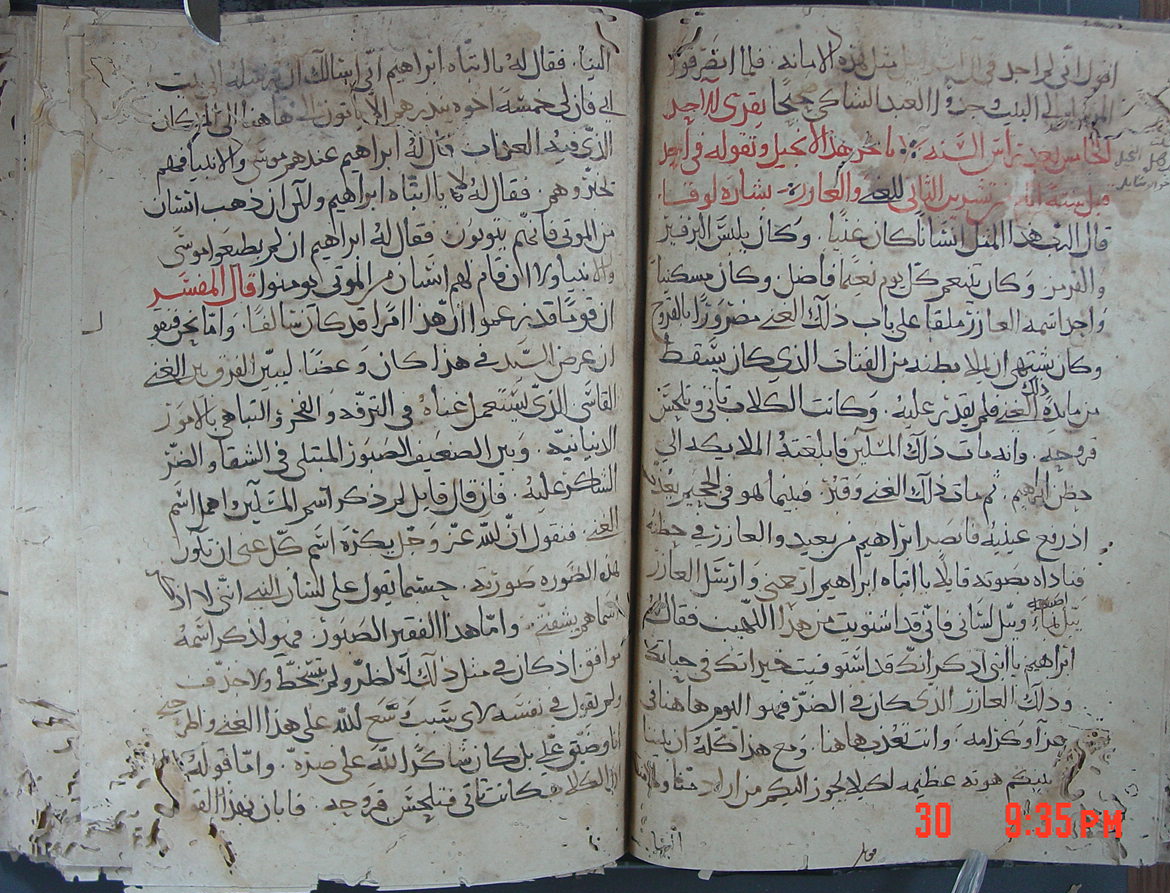 اقول اني لم اجد في مثل هذه الامانه. فلما انصرفوا
الي البيت وجدوا العبد الشاكي صحيحا يقرى للاحد
الخامس بعد راس السنه ياخر هذا الانجيل وتقوله في احد
قبل ستة ايام من تشرين الثاني للغني والعازر بشارة لوقا
قال الرب هذا المثل انسانا كان غنيا. وكان يلبس البرفير
والقرمز وكان يتنعم كل يوم نعيما فاضل. وكان مسكينا
واحد اسمه العازر ملقا على باب ذلك الغني مضرورا بالقروح
وكان يشتهي ان يملا بطنه من الفتات الذي كان يسقط
من مايدة ذلك الغني فلم يقدر عليه. وكانت الكلاب تاتي وتلحس
قروحه. وانه مات ذلك المسكين فابلغته الملايكه الى
حظن ابراهيم. ثم مات ذلك الغني وقبر. فبينما هو في الجحيم يعذب
اذ رفع عينيه فابصر ابراهيم من بعيد والعازر في حظنه
فناداه بصوته قايلا يا ابتاه ابراهيم ارحمني وارسل العازر
يبل اصبعه بماء ويبل لساني فاني قد اشتويت من هذا اللهيب فقال له
ابراهيم يا ابني اذكر انك قد استوفيت خيراتك في حياتك
وذلك العازر الذي كان في الضر فهو اليوم هاهنا في
عزا وكرامه وانت تعذب هاهنا. ومع هذا كله ان بيننا
بينكم هوته عظيمه لكيلا يجوز اليكم من اراد
الينا. فقال له يا ابتاه ابراهيم اني اسالك ان ترسله الى بيت
ابي فان لي خمسة اخوه ينذرهم الا ياتون الي هاهنا الى المكان
الذي فيه العذاب قال له ابراهيم عندهم موسى والانبيا فهم
يحذروهم. فقال له كلا يا ابتاه ابراهيم ولكن ان ذهب انسان
من الموتى فانهم يتوبون. فقال له ابراهيم ان لم يطيعوا موسى
والانبيا ولا ان قام لهم انسان من الموتى يومنوا قال المفسر
ان قوما قد زعموا ان هذا امرا قد كان سالفا. واما نحن فنقول
ان غرض السيد في هذا كان وعضا. ليبين الفرق بين الغني
القاسي الذي يستعمل غناه في الترفه والفخر والتباهي بالامور
الدنيانيه. وبين الضعيف الصبور المبتلى في الشقا والضر
الشاكر عليه. فان قال قايل لم ذكر اسم المسكين واهمل اسم
الغني. فنقول ان لله عز وجل يكره اسم كل غني ان يكون
بهذه الصوره صورته. حسبما يقول على لسان النبي انني لا اذكر
اسماهم بشفتي. واما هذا الفقير الصبور. فهو لذكر اسمه
موافق. اذ كان في مثل ذلك الضر ولم يتسخط ولا جدف
ولم يقول في نفسه لاي سبب وسع لله على هذا الغني
انا وضيق علي بل كان شاكرا لله على ضره. واما قوله
ان الكلاب كانت تاتي فتلحس قروحه. فابان بهذا القول